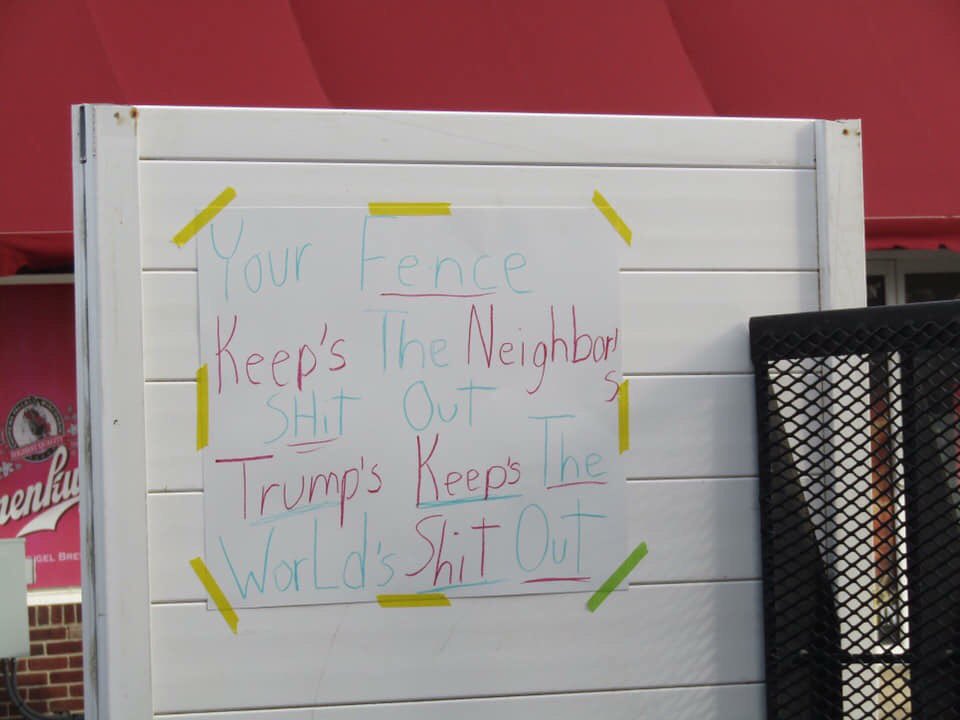 Your Fence
Keep's The Neighbor's
SHiT Out
Trump's Keep's The
WorLd's Shit Out
HIGHEST QUALITY
nenku
UGEL BRE